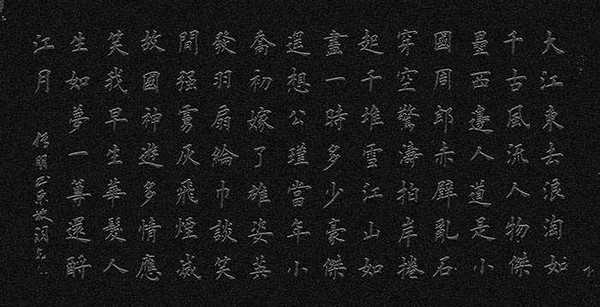 大江東去浪淘如
千古風流人物傑
壘西邊人道是小
國周郎赤壁亂石
穿空驚濤拍岸捲
起千堆雪江山如
畫一時多少豪傑
遥想公瑾當年小
喬初嫁了雄姿英
發羽扇綸巾談笑
間强虜灰飛煙滅
故國神遊多情應
笑我早生華髮人
生如夢一尊還酹
江月